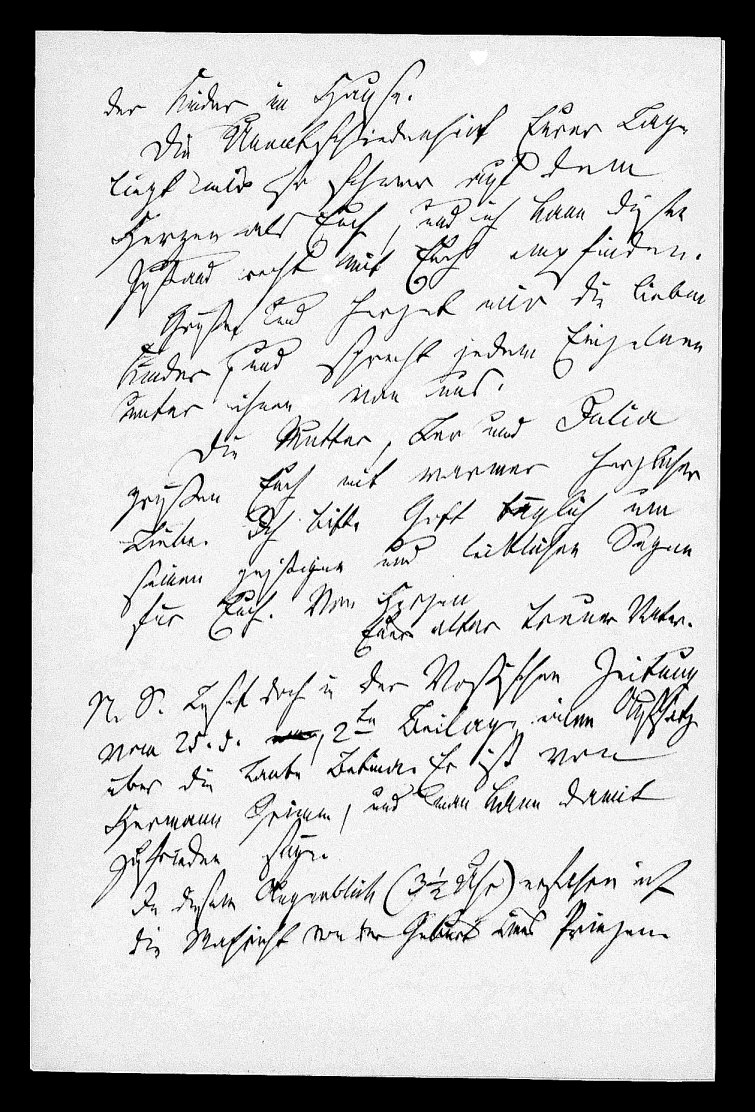 der Kinder im Hause.
Die Unentschiedenheit Eurer Lage
liegt uns so schwer auf dem
Herzen als Euch, und ich kann diesen
Zustand recht mit Euch empfinden.
Grüßet und herzet mir die lieben
Kinder, und sprecht jedem Einzelnen
unter ihnen von uns.
Die Mutter, Leo und Julia
grüßen Euch mit warmer herzlicher
Liebe. Ich bitte Gott täglich um
seinen geistigen und leiblichen Segen
für Euch. Von Herzen
Euer alter treuer Vater.
N. S. Leset doch in der Vossischen Zeitung
vom 25. d. 2te Beilage, einen Aufsatz
über die Tante Bettina. Er ist von
Hermann Grimm, und man kann damit
zufrieden sein.
In diesem Augenblick (3 1/2 Uhr) erfahren wir
die Nachricht von der Geburt eines Prinzen.